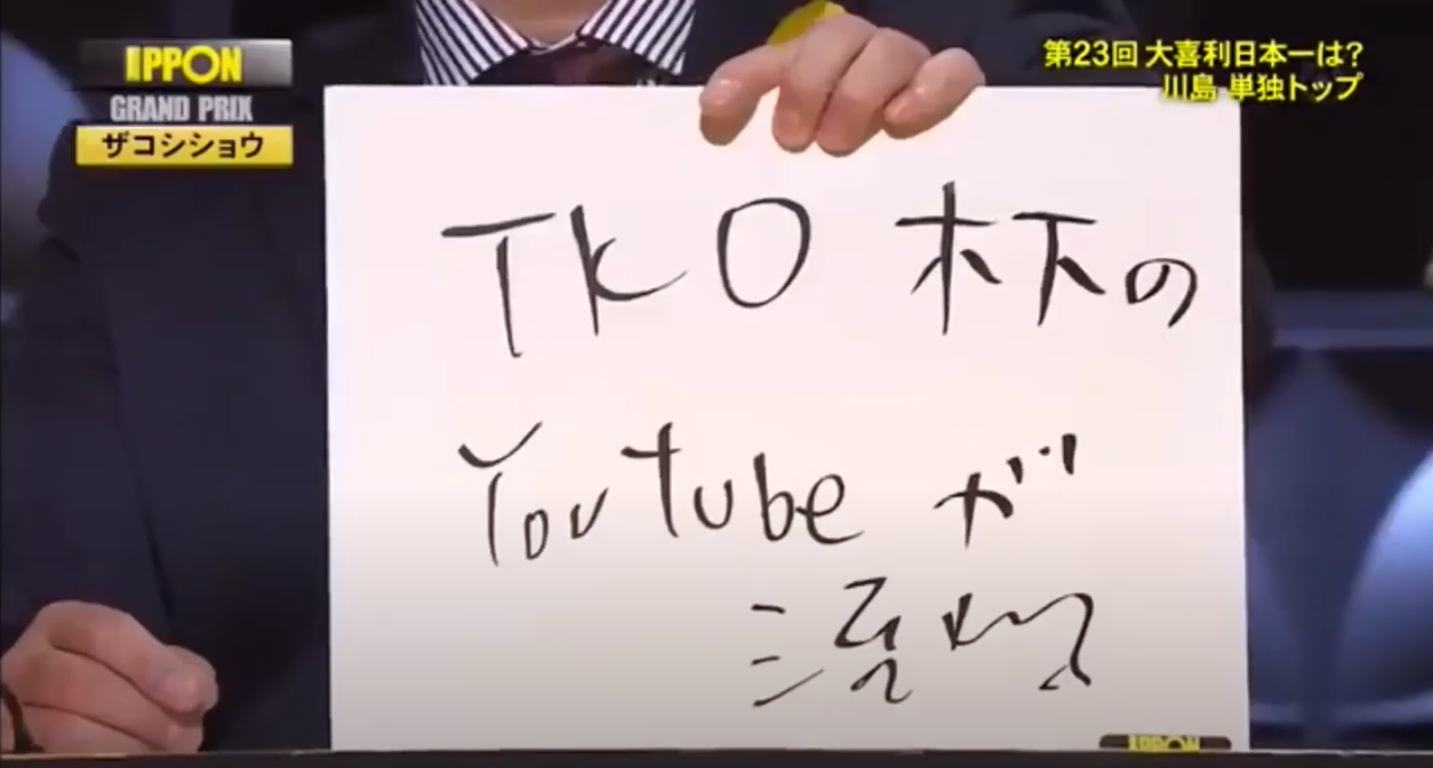 IPPON
GRAND PRIX
ザコシショウ
第23回 大喜利日本一は?
川島 単独トップ
TKO 木下の
Youtubeが
流れる
IPPON